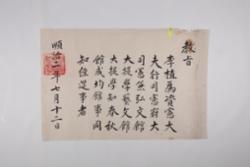 教旨
李植爲資憲大
夫行司憲府大
司憲兼弘文館
大提學藝文館
大提學知春秋
館成均館事同
知經筵事者
順治二年七月十二日